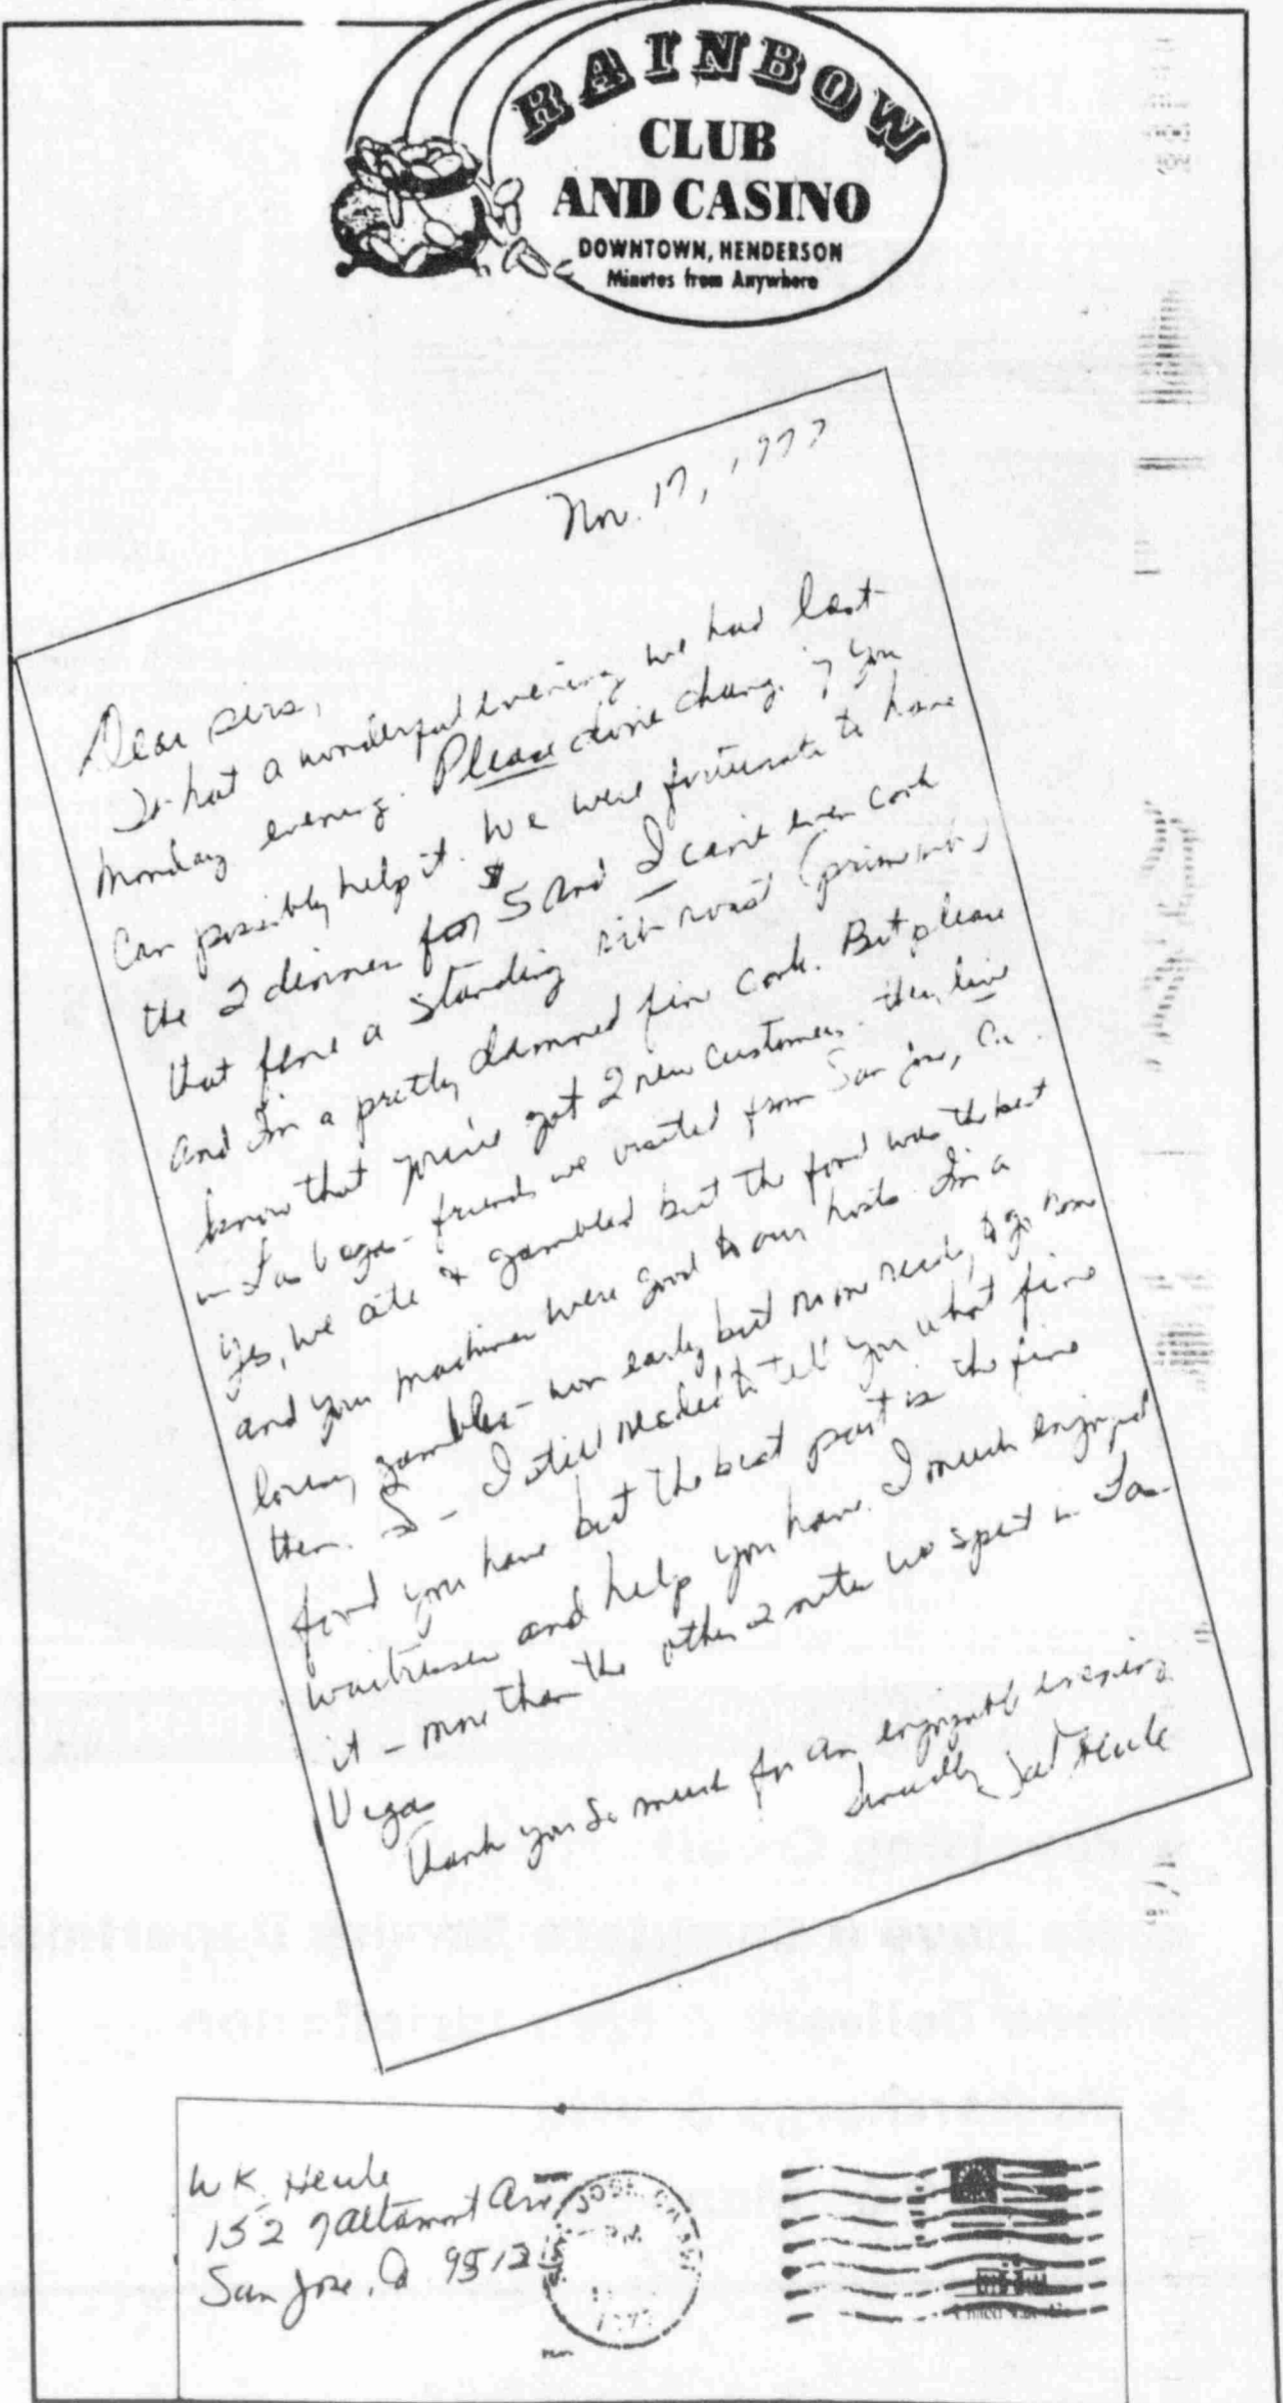 RAINBOW
CLUB
AND CASINO
DOWNTOWN, HENDERSON
Minutes from Anywhere
Nov. 17, 1977
Dear Sirs,
What a wonderful evening we had last
Monday evening. Please don't change if you
can possibly help it. We were fortunate to have
the 2 dinner for $5 and I can't even cook
that fine a standing rib roast (prime rib)
and I'm a pretty damned fine cook. But please
know that you've got 2 new customers. They live
in Las Vegas - friends we visited from San Jose, Ca.
Yes, we ate & gambled but the food was the best
and your machines were good to our hosts. I'm a
lousy gambler - won early but more ready to go home
then. So - I still needed to tell you what fine
food you have but the best part is the fine
waitresses and help you have. I much enjoyed
it - more than the other 2 nites we spent in Las
Vegas
Thank you so much for an enjoyable evening
Sincerely, Heule
W K Heule
1527 Altamont Ave
San Jose, Ca 9512
SAN JOSE, CA
PM
1977